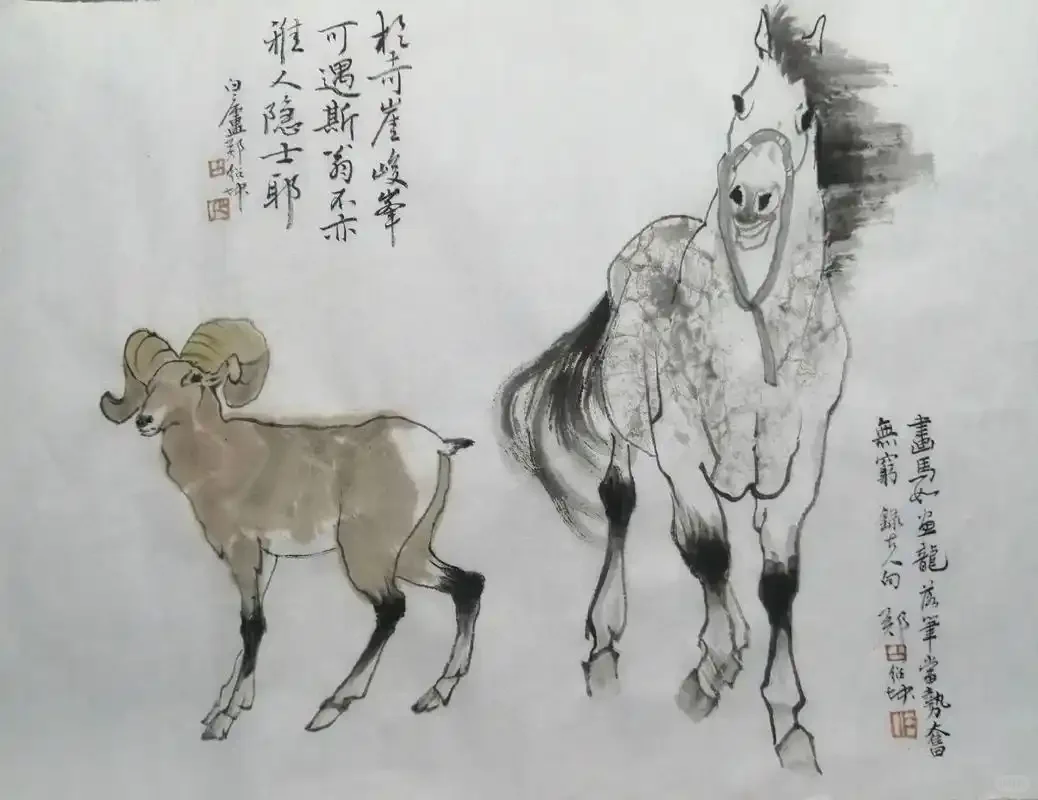 於奇崖峻峯
可遇斯翁不亦
雅人隐士耶
白廬郑绍坤
畫馬如畫龍落筆當勢奮
無窮 錄古人句 郑绍坤